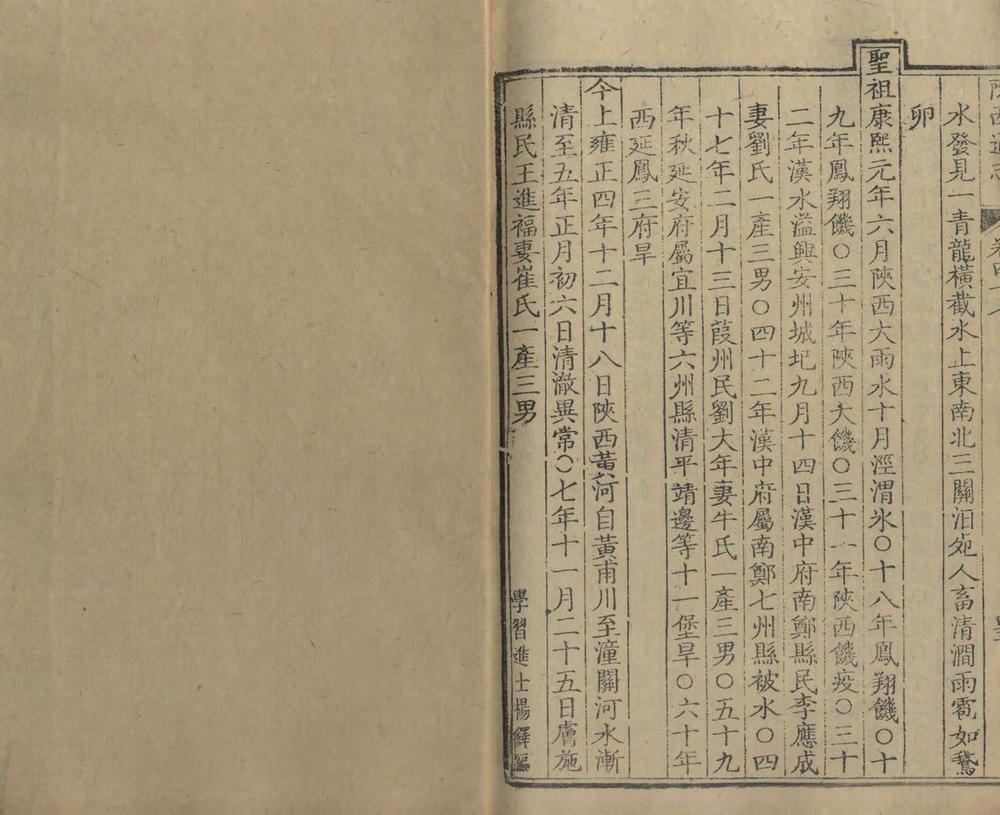 水發見一青龍橫截水上東南北三關汩 人畜清澗雨雹如鵞
卵
聖祖康熙元年六月陝西大雨水十月涇渭氷〇十八年鳳翔饑〇十
九年鳳翔饑〇三十年陝西大饑〇三十一年陝西饑疫〇三十
二年漢水溢興安州城圮九月十四日漢中府南鄭縣民李應成
妻劉氏一產三男〇四十二年漢中府屬南鄭七州縣被水〇四
十七年二月十三日葭州民劉大年妻牛氏一產三男〇五十九
年秋延安府屬宜川等六州縣清平靖邊等十一堡旱〇六十年
西延鳳三府旱
今上雍正四年十二月十八日陝西黃河自黃甫川至潼關河水漸
清至五年正月初六日清澈異常〇七年十一月二十五日膚施
縣民王進福妻崔氏一產三男
學習進士楊繹編